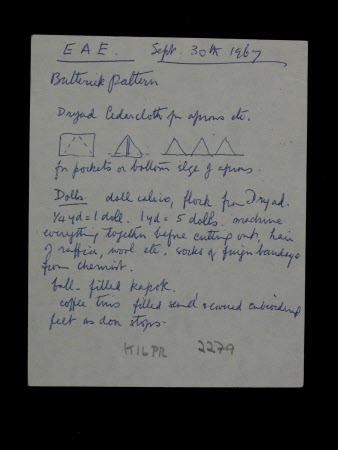 EAE. Sept. 30th 1967
Butterick pattern
Dryad Cedarcloth for aprons etc.
for pockets or bottom edge of aprons.
Dolls. doll calico, flock from Dryad.
1/4 yd = 1 doll. 1 yd = 5 dolls. machine
everything together before cutting out, hair
of raffia, wool etc. socks of finger bandage
from chemist.
ball - filled kapok.
coffee tins filled sand & covered embroidered
felt as door stops.
K1LPR 2279